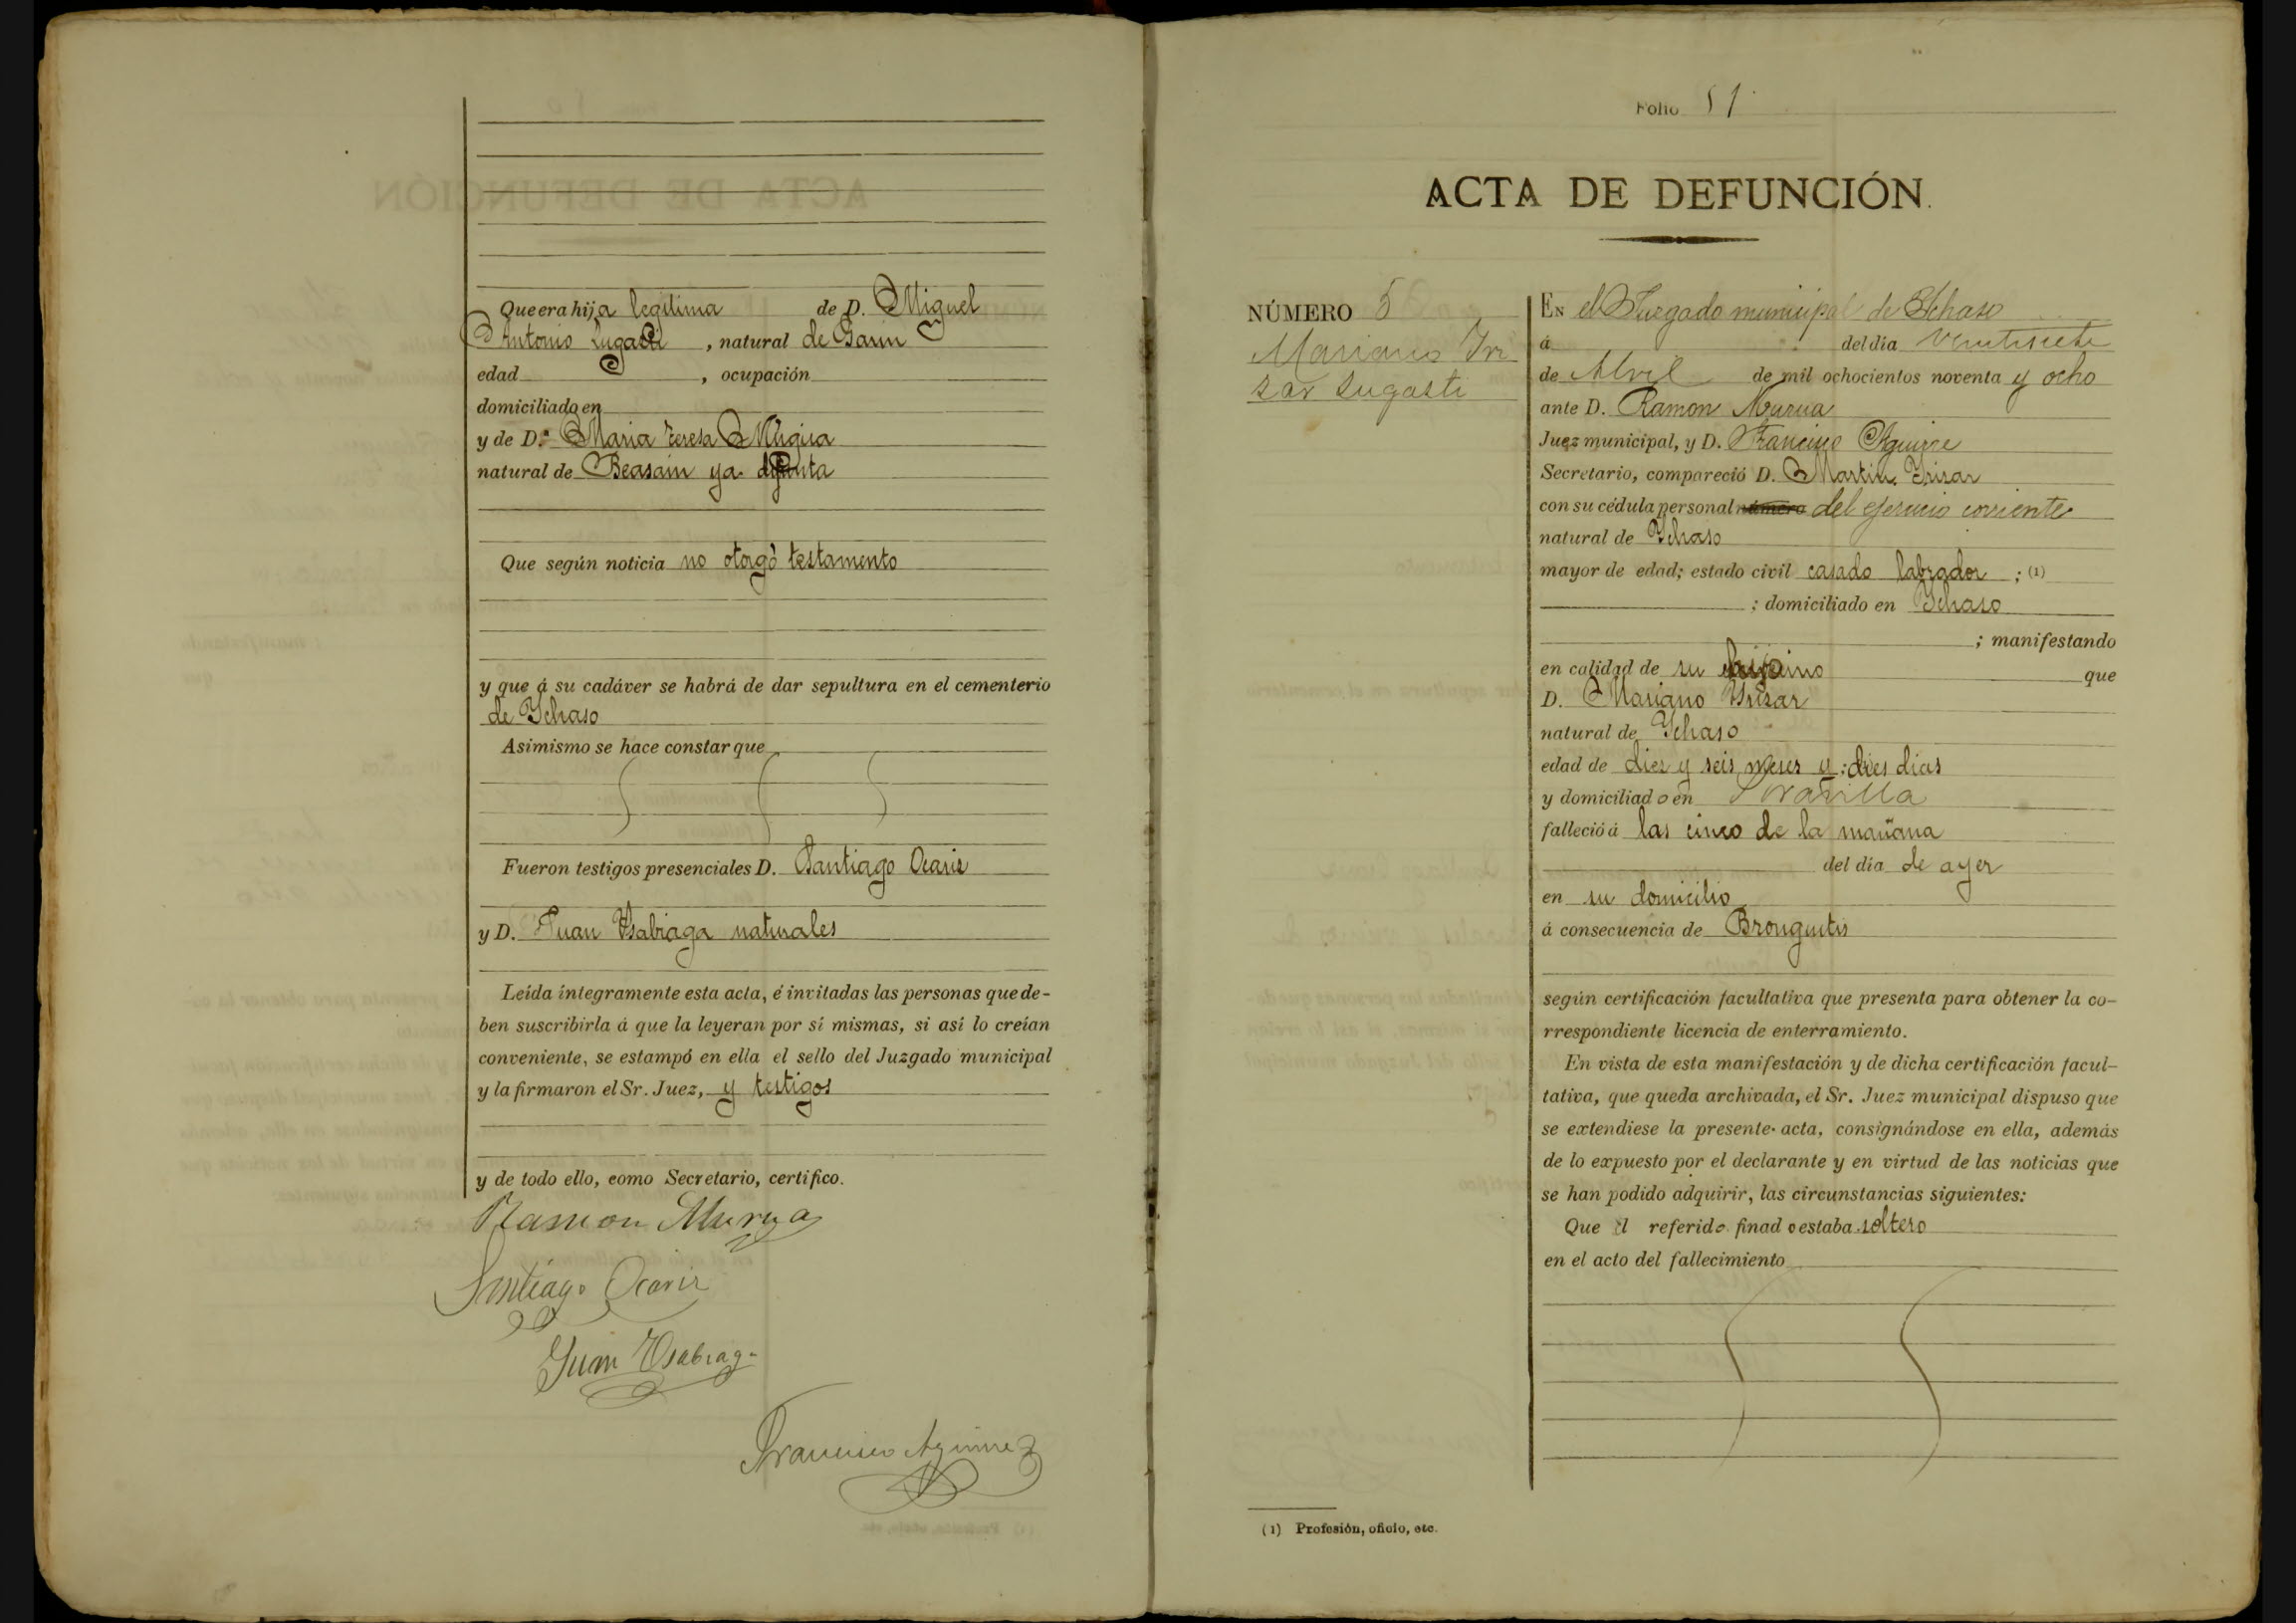 Que era hija legítima de D. Miguel
Antonio Lugasti, natural de Garin
edad , ocupación
domiciliado en
y de D.ª Maria Teresa Mugica
natural de Beasain ya difunta
Que según noticia no otorgó testamento
y que á su cadáver se habrá de dar sepultura en el cementerio
de Ychaso
Asimismo se hace constar que
Fueron testigos presenciales D. Santiago Ocariz
y D. Juan Ysabiaga naturales
Leída íntegramente esta acta, é invitadas las personas que de-
ben suscribirla á que la leyeran por sí mismas, si así lo creían
conveniente, se estampó en ella el sello del Juzgado municipal
y la firmaron el Sr. Juez, y testigos
y de todo ello, como Secretario, certifico.
Ramon Murua
Santiago Ocariz
Juan Ysabiaga
Francisco Aguirre
Folio 51
ACTA DE DEFUNCIÓN.
NÚMERO 5
Mariano Iri
zar Lugasti
EN el Juzgado municipal de Ychaso
á del día veintisiete
de Abril de mil ochocientos noventa y ocho
ante D. Ramon Murua
Juez municipal, y D. Francisco Aguirre
Secretario, compareció D. Martin Yrizar
con su cédula personal número del ejercicio corriente
natural de Ychaso
mayor de edad; estado civil casado labrador ; (1)
; domiciliado en Ychaso
; manifestando
en calidad de su que
D. Mariano Yrizar
natural de Ychaso
edad de diez y seis meses y dies dias
y domiciliado en
falleció á las cinco de la mañana
del día de ayer
en su domicilio
á consecuencia de Bronquitis
según certificación facultativa que presenta para obtener la co-
rrespondiente licencia de enterramiento.
En vista de esta manifestación y de dicha certificación facul-
tativa, que queda archivada, el Sr. Juez municipal dispuso que
se extendiese la presente acta, consignándose en ella, además
de lo expuesto por el declarante y en virtud de las noticias que
se han podido adquirir, las circunstancias siguientes:
Que el referido finado estaba soltero
en el acto del fallecimiento
(1) Profesión, oficio, etc.